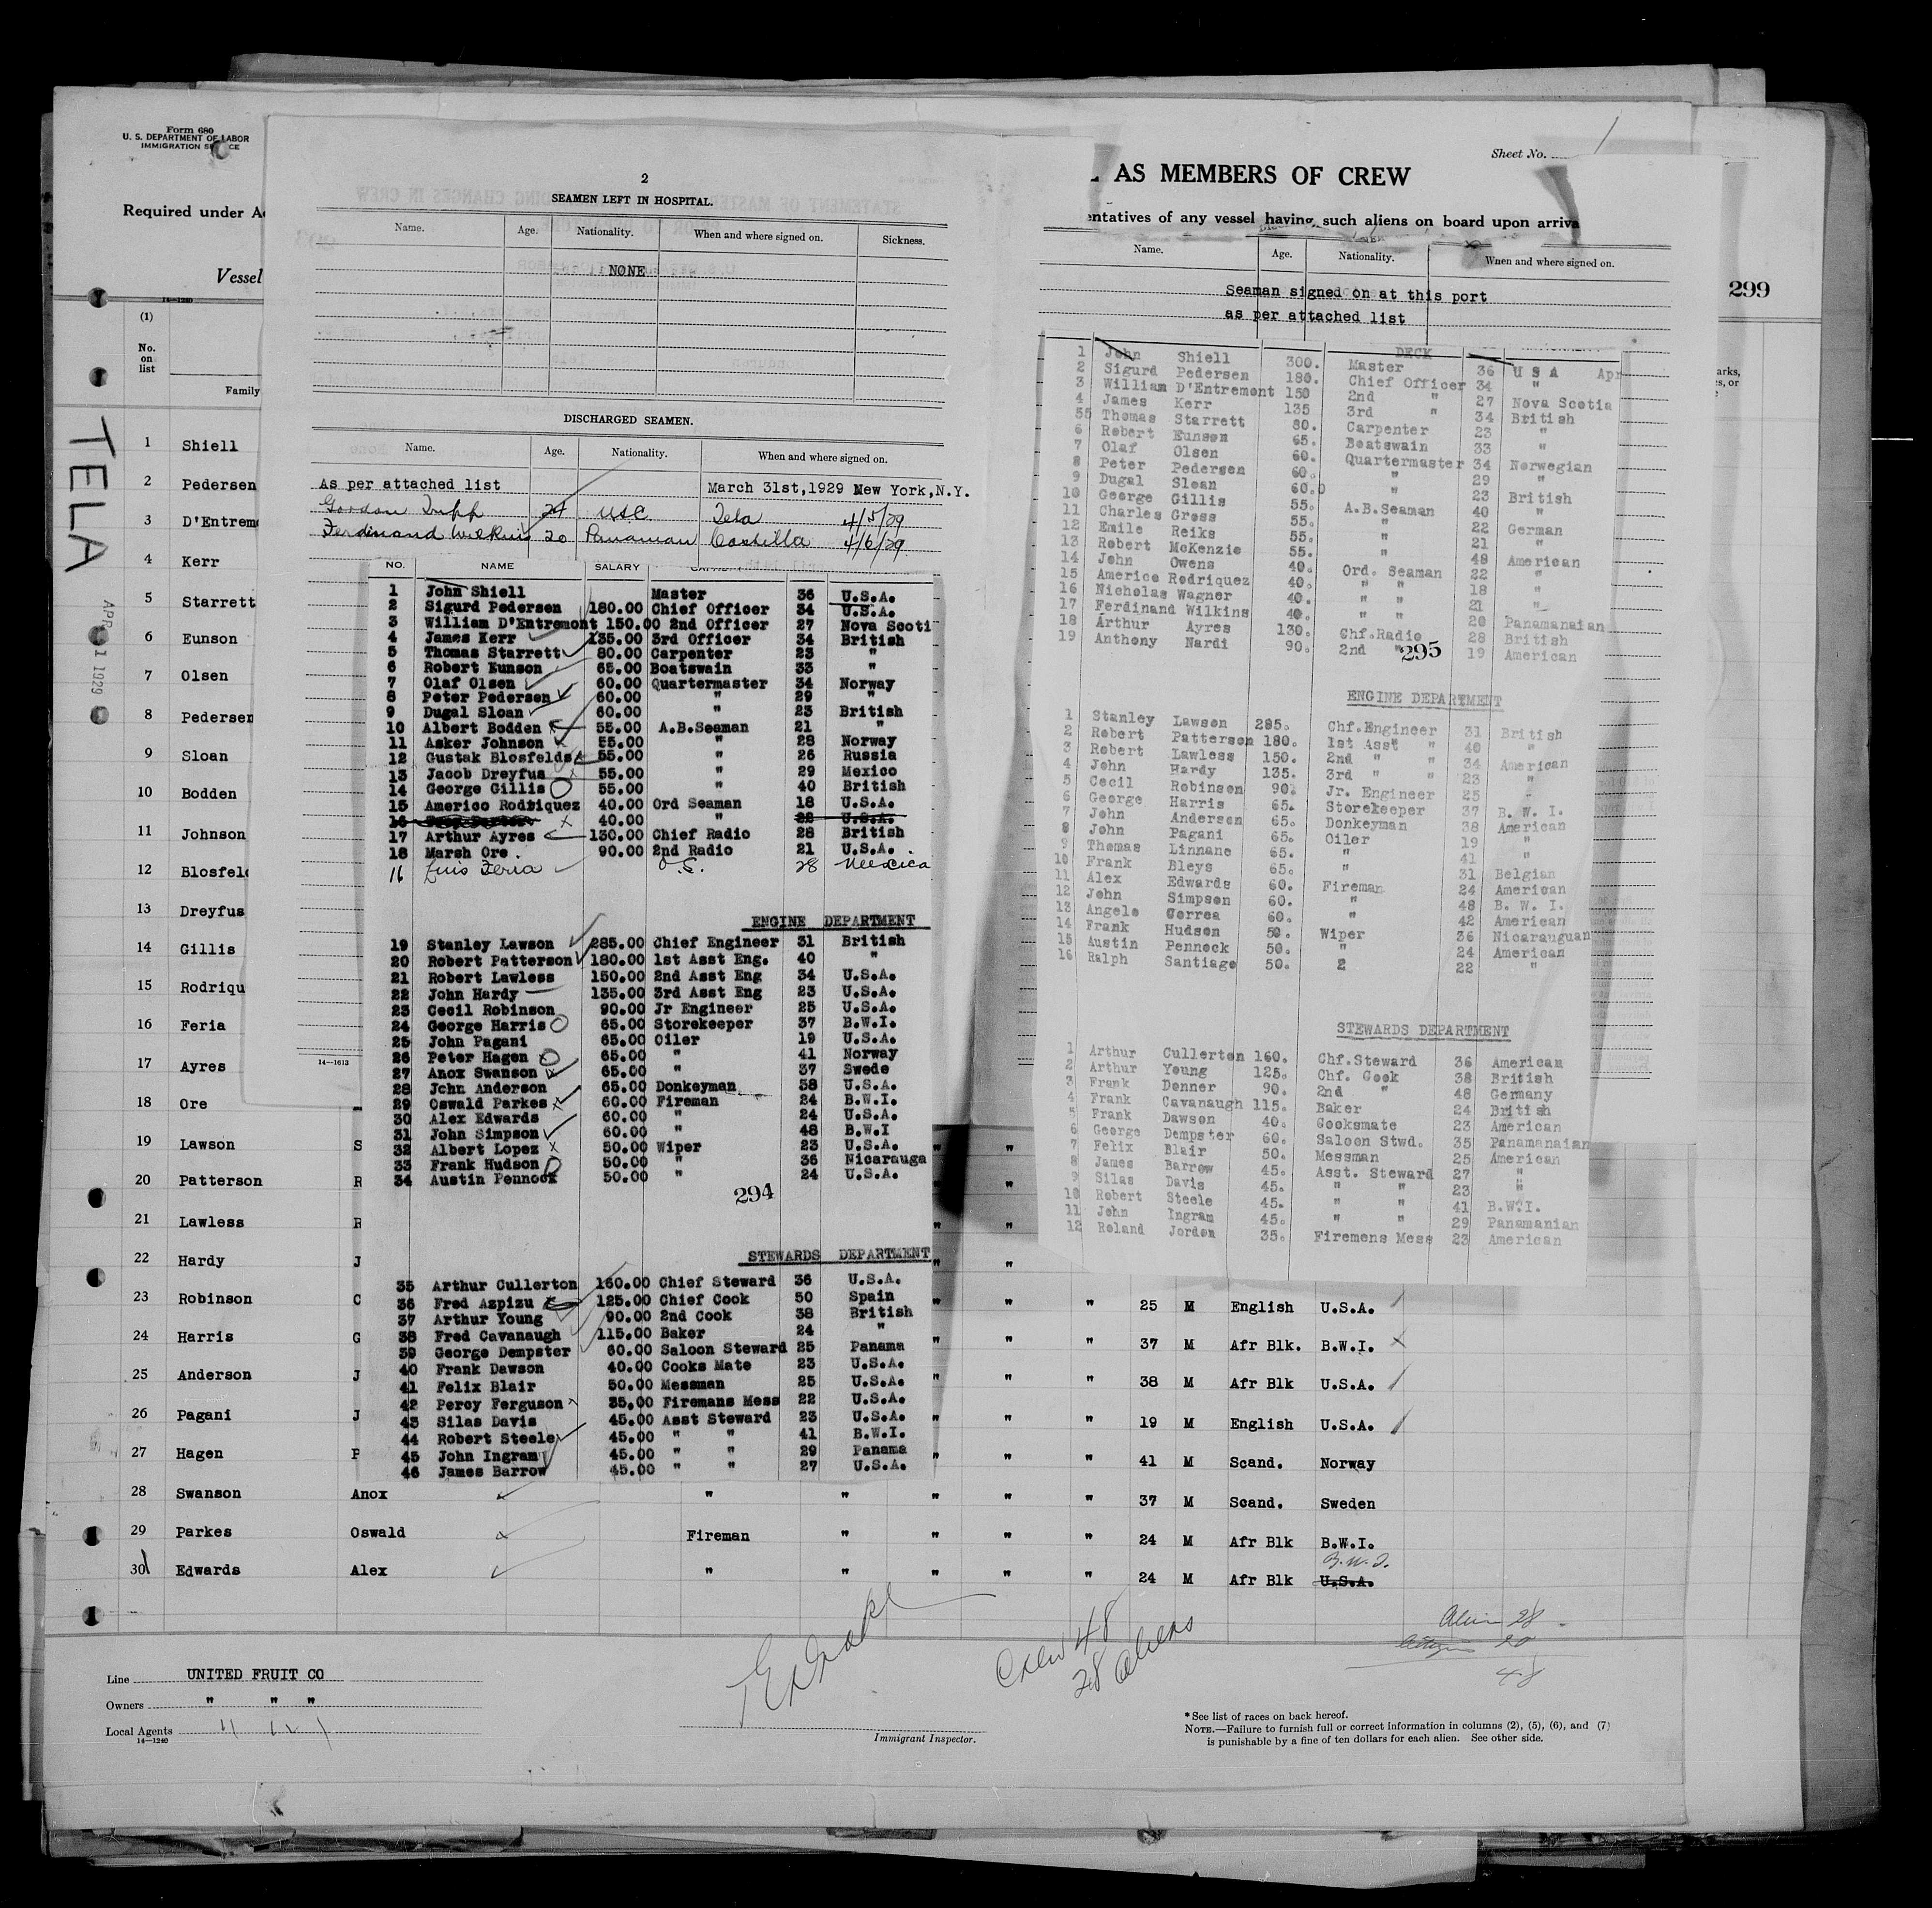 Form 680
U. S. DEPARTMENT OF LABOR
IMMIGRATION
Required under
Vessel
14—1240
(1)
No.
on
list
Family
TELA
APR 1 1929
1 Shiell
2 Pedersen
3 D'Entrem
4 Kerr
5 Starrett
6 Eunson
7 Olsen
8 Pedersen
9 Sloan
10 Bodden
11 Johnson
12 Blosfel
13 Dreyfus
14 Gillis
15 Rodriqu
16 Feria
17 Ayres
18 Ore
19 Lawson S " "
20 Patterson R "
21 Lawless R " "
22 Hardy J " "
23 Robinson C " " " 25 M English U.S.A.
24 Harris G " " " 37 M Afr Blk. B.W.I.
25 Anderson J " " " 38 M Afr Blk U.S.A.
26 Pagani J " " " 19 M English U.S.A.
27 Hagen P " " " 41 M Scand. Norway
28 Swanson Anox " " " " " 37 M Scand. Sweden
29 Parkes Oswald Fireman " " " " 24 M Afr Blk B.W.I.
B.W.I.
30 Edwards Alex " " " " " 24 M Afr Blk U.S.A.
2
SEAMEN LEFT IN HOSPITAL.
Name. Age. Nationality. When and where signed on. Sickness.
NONE
DISCHARGED SEAMEN.
Name. Age. Nationality. When and where signed on.
As per attached list March 31st,1929 New York,N.Y.
Gordon 24 USC Tela 4/5/29
Ferdinand Wilkins 20 Panaman Castilla 4/6/29
NO. NAME SALARY
1 John Shiell Master 36 U.S.A.
2 Sigurd Pedersen 180.00 Chief Officer 34 U.S.A.
3 William D'Entremont 150.00 2nd Officer 27 Nova Scoti
4 James Kerr 135.00 3rd Officer 34 British
5 Thomas Starrett 80.00 Carpenter 23 "
6 Robert Eunson 65.00 Boatswain 33 "
7 Olaf Olsen 60.00 Quartermaster 34 Norway
8 Peter Pedersen 60.00 " 29 "
9 Dugal Sloan 60.00 " 23 British
10 Albert Bodden 55.00 A.B.Seaman 21 "
11 Asker Johnson 55.00 " 28 Norway
12 Gustak Blosfelds 55.00 " 26 Russia
13 Jacob Dreyfus 55.00 " 29 Mexico
14 George Gillis 55.00 " 40 British
15 Americo Rodriquez 40.00 Ord Seaman 18 U.S.A.
16 40.00 " 22 U.S.A.
17 Arthur Ayres 130.00 Chief Radio 28 British
18 Marsh Ore . 90.00 2nd Radio 21 U.S.A.
16 Luis Feria O.S. 28 Mexico
ENGINE DEPARTMENT
19 Stanley Lawson 285.00 Chief Engineer 31 British
20 Robert Patterson 180.00 1st Asst Eng. 40 "
21 Robert Lawless 150.00 2nd Asst Eng 34 U.S.A.
22 John Hardy 135.00 3rd Asst Eng 23 U.S.A.
23 Cecil Robinson 90.00 Jr Engineer 25 U.S.A.
24 George Harris 65.00 Storekeeper 37 B.W.I.
25 John Pagani 65.00 Oiler 19 U.S.A.
26 Peter Hagen 65.00 " 41 Norway
27 Anox Swanson 65.00 " 37 Swede
28 John Anderson 65.00 Donkeyman 38 U.S.A.
29 Oswald Parkes 60.00 Fireman 24 B.W.I.
30 Alex Edwards 60.00 " 24 U.S.A.
31 John Simpson 60.00 " 48 B.W.I
32 Albert Lopez 50.00 Wiper 23 U.S.A.
33 Frank Hudson 50.00 " 36 Nicarauga
34 Austin Pennock 50.00 " 24 U.S.A.
294
STEWARDS DEPARTMENT
35 Arthur Cullerton 160.00 Chief Steward 36 U.S.A.
36 Fred Azpizu 125.00 Chief Cook 50 Spain
37 Arthur Young 90.00 2nd Cook 38 British
38 Fred Cavanaugh 115.00 Baker 24 "
39 George Dempster 60.00 Saloon Steward 25 Panama
40 Frank Dawson 40.00 Cooks Mate 23 U.S.A.
41 Felix Blair 50.00 Messman 25 U.S.A.
42 Percy Ferguson 35.00 Firemans Mess 22 U.S.A.
43 Silas Davis 45.00 Asst Steward 23 U.S.A.
44 Robert Steele 45.00 " " 41 B.W.I.
45 John Ingram 45.00 " " 29 Panama
46 James Barrow 45.00 " " 27 U.S.A.
14—1613
Sheet No. 1
AS MEMBERS OF CREW
entatives of any vessel having such aliens on board upon arriva
Name. Age. Nationality. When and where signed on.
Seaman signed on at this port
as per attached list
299
DECK
1 John Shiell 300. Master 36 U S A Apr
2 Sigurd Pedersen 180. Chief Officer 34 "
3 William D'Entremont 150 2nd " 27 Nova Scotia
4 James Kerr 135 3rd " 34 British
55 Thomas Starrett 80. Carpenter 23 "
6 Robert Eunson 65. Boatswain 33 "
7 Olaf Olsen 60. Quartermaster 34 Norwegian
8 Peter Pedersen 60. " 29 "
9 Dugal Sloan 60.0 " 23 British
10 George Gillis 55. A.B.Seaman 40 "
11 Charles Gross 55. " 22 German
12 Emile Reiks 55. " 21 "
13 Robert McKenzie 55. " 48 American
14 John Owens 40. Ord. Seaman 22 "
15 Americo Rodriquez 40. " " 18 "
16 Nicholas Wagner 40. " " 21 "
17 Ferdinand Wilkins 40. " " 20 Panamanaian
18 Arthur Ayres 130. Chf.Radio 28 British
19 Anthony Nardi 90. 2nd " 19 American
295
ENGINE DEPARTMENT
1 Stanley Lawson 285. Chf.Engineer 31 British
2 Robert Patterson 180. 1st Asst " 40 "
3 Robert Lawless 150. 2nd " " 34 American
4 John Hardy 135. 3rd " " 23 "
5 Cecil Robinson 90. Jr. Engineer 25 "
6 George Harris 65. Storekeeper 37 B. W. I.
7 John Anderson 65. Donkeyman 38 American
8 John Pagani 65. Oiler 19 "
9 Thomas Linnane 65. " 41 "
10 Frank Bleys 65. " 31 Belgian
11 Alex Edwards 60. Fireman 24 American
12 John Simpson 60. " 48 B. W. I.
13 Angelo Correa 60. " 42 American
14 Frank Hudson 50. Wiper 36 Nicarauguan
15 Austin Pennock 50. " 24 American
16 Ralph Santiago 50. 2 22 "
STEWARDS DEPARTMENT
1 Arthur Cullerton 160. Chf.Steward 36 American
2 Arthur Young 125. Chf. Cook 38 British
3 Frank Denner 90. 2nd " 48 Germany
4 Frank Cavanaugh 115. Baker 24 British
5 Frank Dawson 40. Cooksmate 23 American
6 George Dempster 60. Saloon Stwd. 35 Panamanaian
7 Felix Blair 50. Messman 25 American
8 James Barrow 45. Asst. Steward 27 "
9 Silas Davis 45. " " 23 "
10 Robert Steele 45. " " 41 B.W.I.
11 John Ingram 45. " " 29 Panamanian
12 Roland Jordon 35. Firemens Mess 23 American
Line UNITED FRUIT CO
Owners " " "
Local Agents " " "
14—1240
Immigrant Inspector.
Crew 48
28 aliens
Alien 28
20
48
* See list of races on back hereof.
NOTE.—Failure to furnish full or correct information in columns (2), (5), (6), and (7)
is punishable by a fine of ten dollars for each alien. See other side.